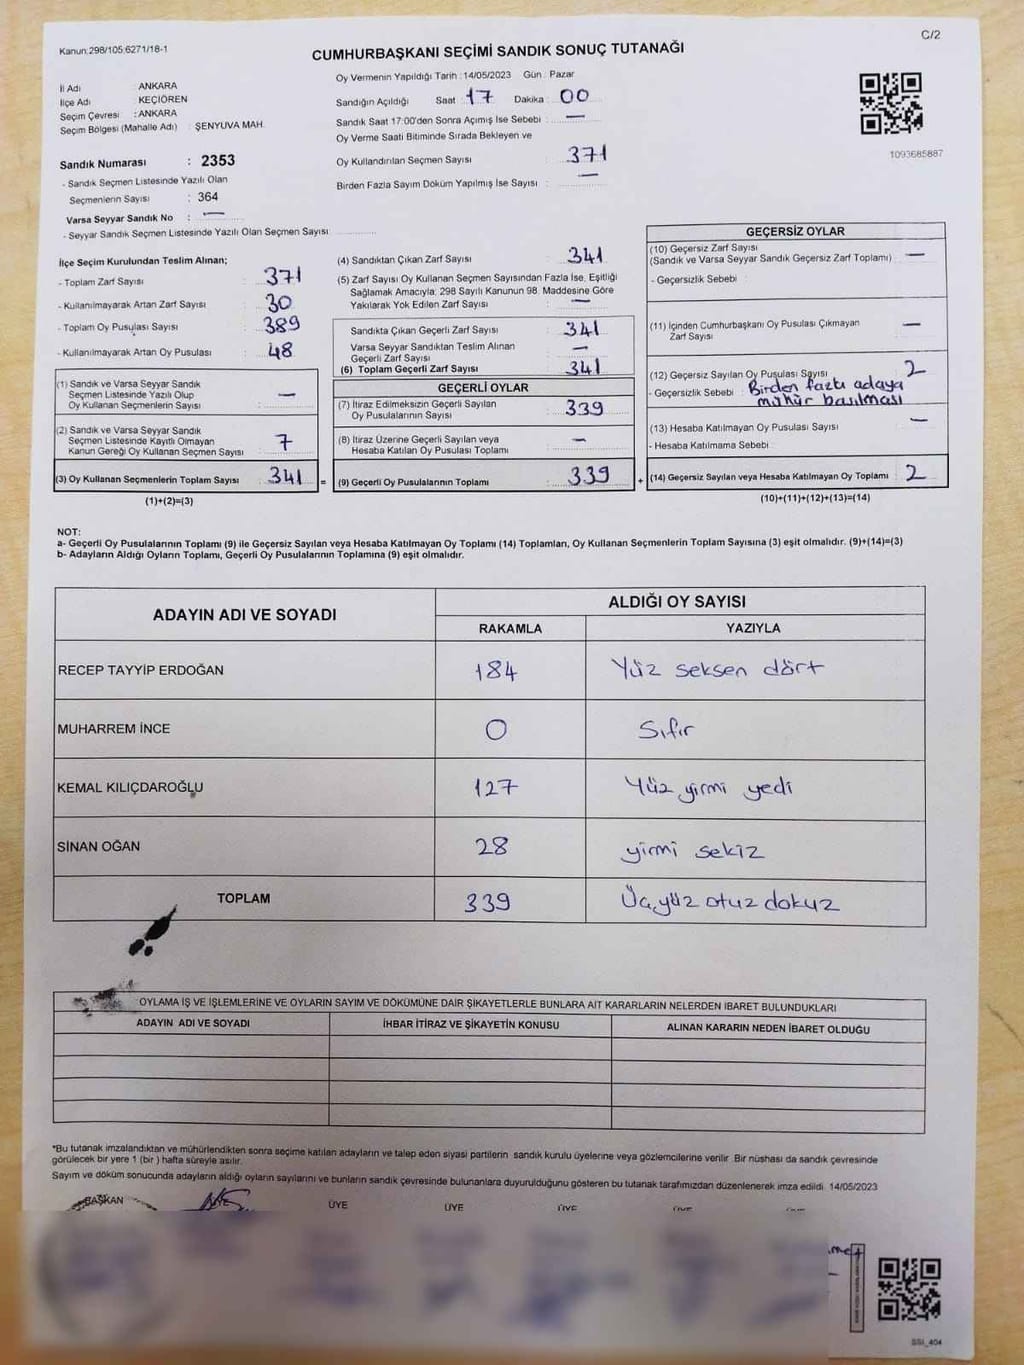 Kanun:298/105;6271/18-1
C/2
CUMHURBAŞKANI SEÇİMİ SANDIK SONUÇ TUTANAĞI
İl Adı ANKARA
İlçe Adı KEÇİÖREN
Seçim Çevresi : ANKARA
Seçim Bölgesi (Mahalle Adı) : ŞENYUVA MAH.
Sandık Numarası : 2353
- Sandık Seçmen Listesinde Yazılı Olan
Seçmenlerin Sayısı : 364
Varsa Seyyar Sandık No : —
- Seyyar Sandık Seçmen Listesinde Yazılı Olan Seçmen Sayısı
Oy Vermenin Yapıldığı Tarih : 14/05/2023 Gün : Pazar
Sandığın Açıldığı Saat : 17 Dakika : 00
Sandık Saat 17:00'den Sonra Açımış İse Sebebi : —
Oy Verme Saati Bitiminde Sırada Bekleyen ve
Oy Kullandırılan Seçmen Sayısı : 371
Birden Fazla Sayım Döküm Yapılmış İse Sayısı : —
1093685887
İlçe Seçim Kurulundan Teslim Alınan;
- Toplam Zarf Sayısı : 371
- Kullanılmayarak Artan Zarf Sayısı : 30
- Toplam Oy Pusulası Sayısı : 389
- Kullanılmayarak Artan Oy Pusulası : 48
(1) Sandık ve Varsa Seyyar Sandık
Seçmen Listesinde Yazılı Olup
Oy Kullanan Seçmenlerin Sayısı : —
(2) Sandık ve Varsa Seyyar Sandık
Seçmen Listesinde Kayıtlı Olmayan
Kanun Gereği Oy Kullanan Seçmen Sayısı : 7
(3) Oy Kullanan Seçmenlerin Toplam Sayısı : 341
(1)+(2)=(3)
=
(4) Sandıktan Çıkan Zarf Sayısı : 341
(5) Zarf Sayısı Oy Kullanan Seçmen Sayısından Fazla İse, Eşitliği
Sağlamak Amacıyla; 298 Sayılı Kanunun 98. Maddesine Göre
Yakılarak Yok Edilen Zarf Sayısı : —
Sandıkta Çıkan Geçerli Zarf Sayısı : 341
Varsa Seyyar Sandıktan Teslim Alınan
Geçerli Zarf Sayısı : —
(6) Toplam Geçerli Zarf Sayısı : 341
GEÇERLİ OYLAR
(7) İtiraz Edilmeksizin Geçerli Sayılan
Oy Pusulalarının Sayısı : 339
(8) İtiraz Üzerine Geçerli Sayılan veya
Hesaba Katılan Oy Pusulası Toplamı : —
(9) Geçerli Oy Pusulalarının Toplamı : 339
+
GEÇERSİZ OYLAR
(10) Geçersiz Zarf Sayısı
(Sandık ve Varsa Seyyar Sandık Geçersiz Zarf Toplamı) : —
- Geçersizlik Sebebi :
(11) İçinden Cumhurbaşkanı Oy Pusulası Çıkmayan
Zarf Sayısı : —
(12) Geçersiz Sayılan Oy Pusulası Sayısı : 2
- Geçersizlik Sebebi : Birden fazla adaya
mühür basılması
(13) Hesaba Katılmayan Oy Pusulası Sayısı : —
- Hesaba Katılmama Sebebi :
(14) Geçersiz Sayılan veya Hesaba Katılmayan Oy Toplamı : 2
(10)+(11)+(12)+(13)=(14)
NOT:
a- Geçerli Oy Pusulalarının Toplamı (9) ile Geçersiz Sayılan veya Hesaba Katılmayan Oy Toplamı (14) Toplamları, Oy Kullanan Seçmenlerin Toplam Sayısına (3) eşit olmalıdır. (9)+(14)=(3)
b- Adayların Aldığı Oyların Toplamı, Geçerli Oy Pusulalarının Toplamına (9) eşit olmalıdır.
ADAYIN ADI VE SOYADI
ALDIĞI OY SAYISI
RAKAMLA YAZIYLA
RECEP TAYYİP ERDOĞAN 184 Yüz seksen dört
MUHARREM İNCE 0 Sıfır
KEMAL KILIÇDAROĞLU 127 Yüz yirmi yedi
SİNAN OĞAN 28 yirmi sekiz
TOPLAM 339 Üçyüz otuz dokuz
OYLAMA İŞ VE İŞLEMLERİNE VE OYLARIN SAYIM VE DÖKÜMÜNE DAİR ŞİKAYETLERLE BUNLARA AİT KARARLARIN NELERDEN İBARET BULUNDUKLARI
ADAYIN ADI VE SOYADI İHBAR İTİRAZ VE ŞİKAYETİN KONUSU ALINAN KARARIN NEDEN İBARET OLDUĞU
*Bu tutanak imzalandıktan ve mühürlendikten sonra seçime katılan adayların ve talep eden siyasi partilerin sandık kurulu üyelerine veya gözlemcilerine verilir. Bir nüshası da sandık çevresinde
görülecek bir yere 1 (bir ) hafta süreyle asılır.
Sayım ve döküm sonucunda adayların aldığı oyların sayılarını ve bunların sandık çevresinde bulunanlara duyurulduğunu gösteren bu tutanak tarafımızdan düzenlenerek imza edildi. 14/05/2023
BAŞKAN ÜYE ÜYE ÜYE ÜYE
SSI_404